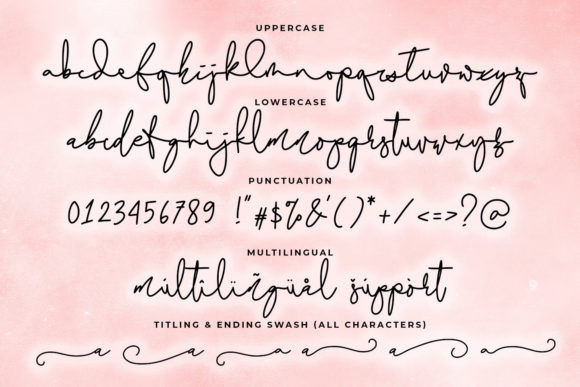 UPPERCASE
abcdefghijklmnopqrstuvwxyz
LOWERCASE
abcdefghijklmnopqrstuvwxyz
PUNCTUATION
0123456789 !"#$%&'()*+/<=>?@
MULTILINGUAL
múltîlïñgüål šúppòrt
TITLING & ENDING SWASH (ALL CHARACTERS)
a a a a a a